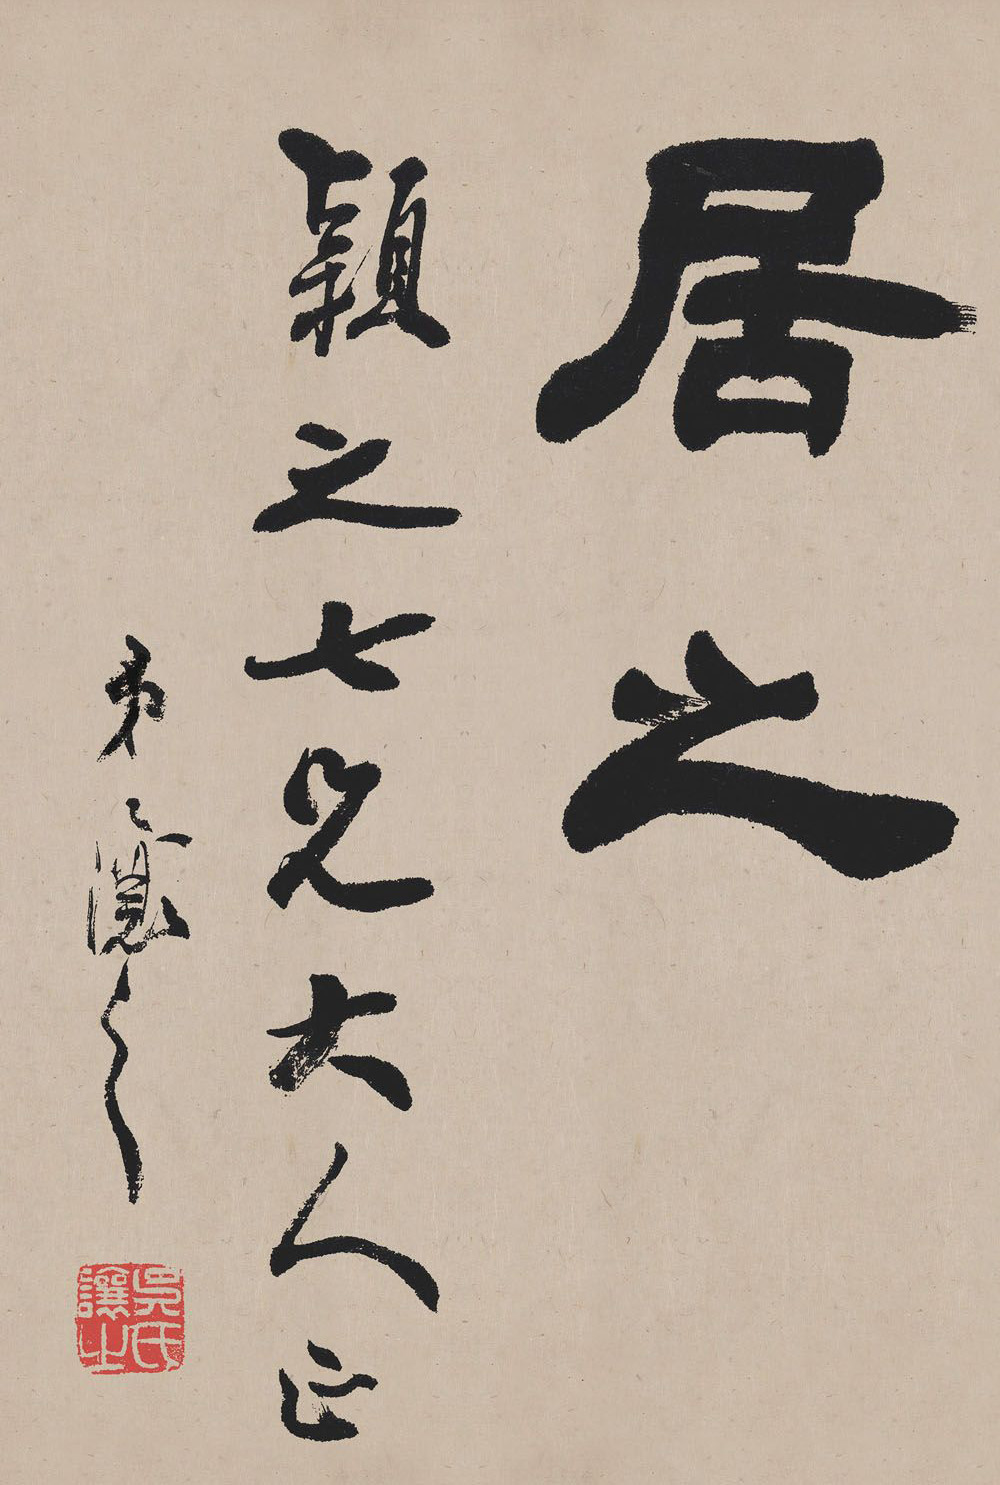 居之
穎之七兄大人正
弟讓之
吳氏讓之